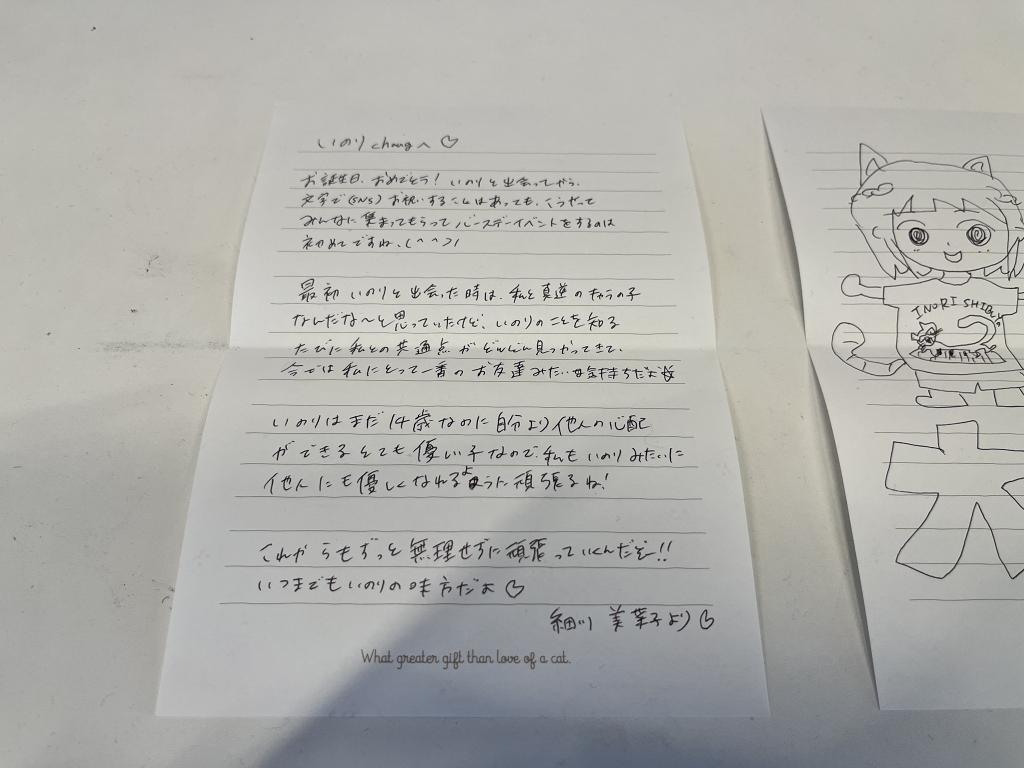 いのりchangへ♡
お誕生日、おめでとう! いのりと出会ってから、
文字で(SNS)お祝いすることはあっても、こうやって
みんなに集まってもらってバースデーイベントをするのは
初めてですね、(^^)/
最初いのりと出会った時は、私と真逆のキャラの子
なんだな〜と思っていたけど、いのりのことを知る
たびに私との共通点がどんどん見つかってきて、
今では私にとって一番のお友達みたいな気持ちだよ
いのりはまだ14歳なのに自分より他人の心配
ができるとても優しい子なので、私もいのりみたいに
他人にも優しくなれるように頑張るね!
これからもずっと無理せずに頑張っていくんだぞ!!
いつまでもいのりの味方だよ♡
細川 美菜子より♡
What greater gift than love of a cat.
INORI SHIBUYA